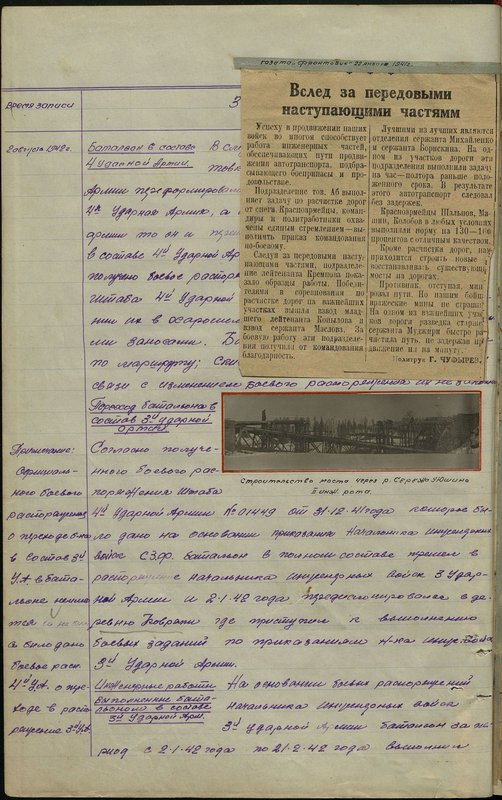 газета „Фронтовик“ 22 января 1942г.
Вслед за передовыми
наступающими частями
Успеху в продвижении наших
войск во многом способствует
работа инженерных частей,
обеспечивающих пути продви-
жения автотранспорта, подбра-
сывающего боеприпасы и про-
довольствие.
Подразделение тов. Аб выпол-
няет задачу по расчистке дорог
от снега. Красноармейцы, коман-
диры и политработники охва-
чены единым стремлением — вы-
полнить приказ командования
по-боевому.
Следуя за передовыми насту-
пающими частями, подразделе-
ние лейтенанта Кремнева пока-
зало образцы работы. Победи-
телями в соревновании по
расчистке дорог на важнейших
участках вышли взвод млад-
шего лейтенанта Копылова и
взвод сержанта Маслова. За
боевую работу эти подразделе-
ния получили от командования
благодарность.
Лучшими из лучших являются
отделения сержанта Михайленко
и сержанта Борискина. На од-
ном из участков дороги эти
подразделения выполнили задачу
на час—полтора раньше поло-
женного срока. В результате
этого автотранспорт следовал
без задержек.
Красноармейцы Шальнов, Ма-
нин, Колобов в любых условиях
выполняли норму на 130—1
процентов с отличным качеством.
Кроме расчистки дорог, на
приходится строить новые
восстанавливать существующ
мосты на дорогах.
Противник, отступая, мин
ровал пути. Но нашим бойц
вражеские мины не страшн
На одном из важнейших учас
ков дороги разведка старше
сержанта Муджири быстро ра
чистила путь, не задержав пр
движение ни на минуту.
Политрук Г. ЧУФЫРЕВ.
Время записи
З
2 августа 1942 г.
Батальон в составе В соо
4 Ударной Армии.
Армии переформирован
4й Ударную Армию, а
армии то он и
в составе 4й Ударной Ар
получено боевое распоря
Штаба 4й Ударной
нии их в
ми заносами. Б
по маршруту;
связи с изменением боевого распоряжения их не
Переход батальона в
состав 3й ударной
армии
Строительство моста через р. Сережа
инж. рота.
Примечание:
Официаль-
ного боевого
распоряжения
о переходе б-на
в состав 3й
У.А. в бата-
льоне
а было дано
боевое расп.
4й У.А. о пере-
ходе в распо-
ряжение 3й У.А.
Согласно получе-
нного боевого рас-
поряжения Штаба
4й Ударной Армии № 01449 от 31.12-41 года которое бы-
ло дано на основании приказания Начальника инженерных
войск С.З.Ф. батальон в полном составе перешел в
распоряжение начальника инженерных войск 3 Удар-
ной Армии и 2-1-42 года передислоцировался в де-
ревню Ковряки где приступил к выполнению
боевых заданий по приказаниям н-ка инж. войск
3й Ударной Армии.
Инженерные работы На основании боевых распоряжений
выполненные бата-
льоном в составе начальника инженерных войск
3й Ударной Арм. 3й ударной Армии батальон за пе-
риод с 2-1-42 года по 21-2-42 года выполнил